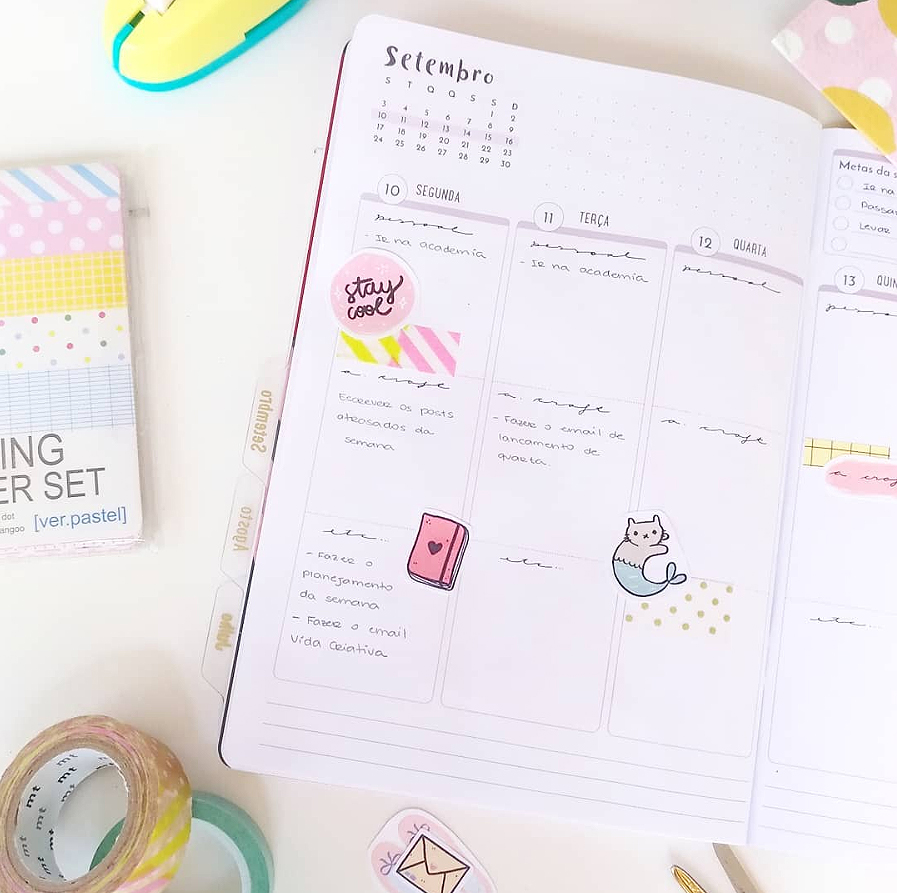 Setembro
S T Q Q S S D
1 2
3 4 5 6 7 8 9
10 11 12 13 14 15 16
17 18 19 20 21 22 23
24 25 26 27 28 29 30
10 SEGUNDA
pessoal
- Ir na academia
stay
cool
a. craft
Escrever os posts
atrasados da
semana
etc...
- Fazer o
planejamento
da semana
- Fazer o email
Vida Criativa
11 TERÇA
pessoal
- Ir na academia
a. craft
- Fazer o email de
lancamento de
quarta.
etc...
12 QUARTA
pessoal
a. craft
Metas da s
Ir na
Passa
Levar
13 QUIN
pesso
a craf
etc...
Setembro
Agosto
Julho
ING
ER SET
dot
angoo
[ver.pastel]
mt mt mt